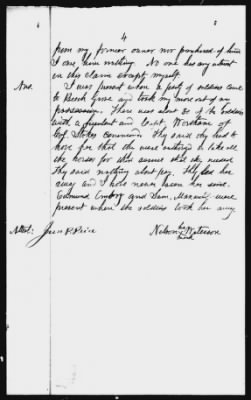 4
from my former owner nor purchased of him
I owe him nothing. No one has any interest
in this claim except myself.
Ans. I was present when a party of soldiers came
to Beech Grove and took my mare out of my
possession. There was about 30 of the soldiers
with a Lieutenant and Capt. of
Col. Stokes command. They said they had to
have her that they were ordered to take all
the horses for this service that they needed
They said nothing about pay. They led her
away and I have never seen her since.
and Sam. were
present when the soldiers took her away.
his
Attest: Jno P. Price Nelson Waterson
mark